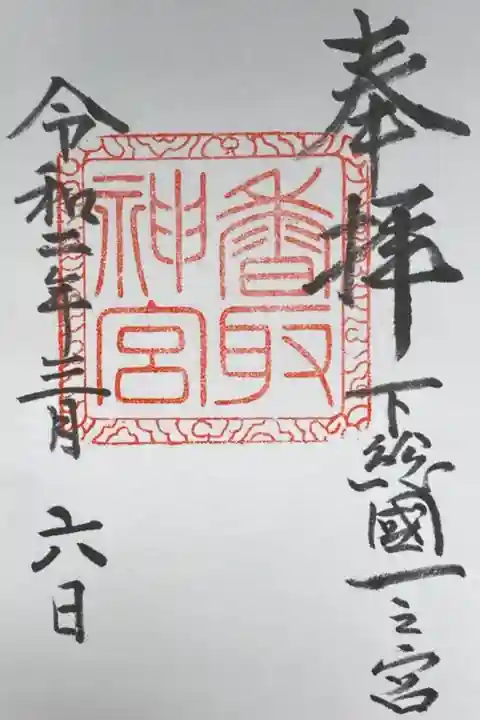 奉拝
下総國一之宮
香取
神宮
令和二年三月
六日